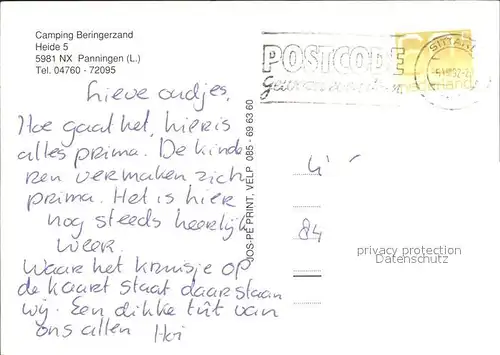 Camping Beringerzand
Heide 5
5981 NX Panningen (L.)
Tel. 04760 - 72095
Lieve oudjes,
Hoe gaat het, hier is
alles prima. De kinde-
ren vermaken zich
prima. Het is hier
nog steeds heerlijk
weer.
Waar het kruisje op
de kaart staat daar staan
wij. Een dikke tût van
ons allen Hoi
JOS-PÉ PRINT, VELP 085 - 69 63 60
POSTCODE
SITTARD
Li
84
privacy protection
Datenschutz